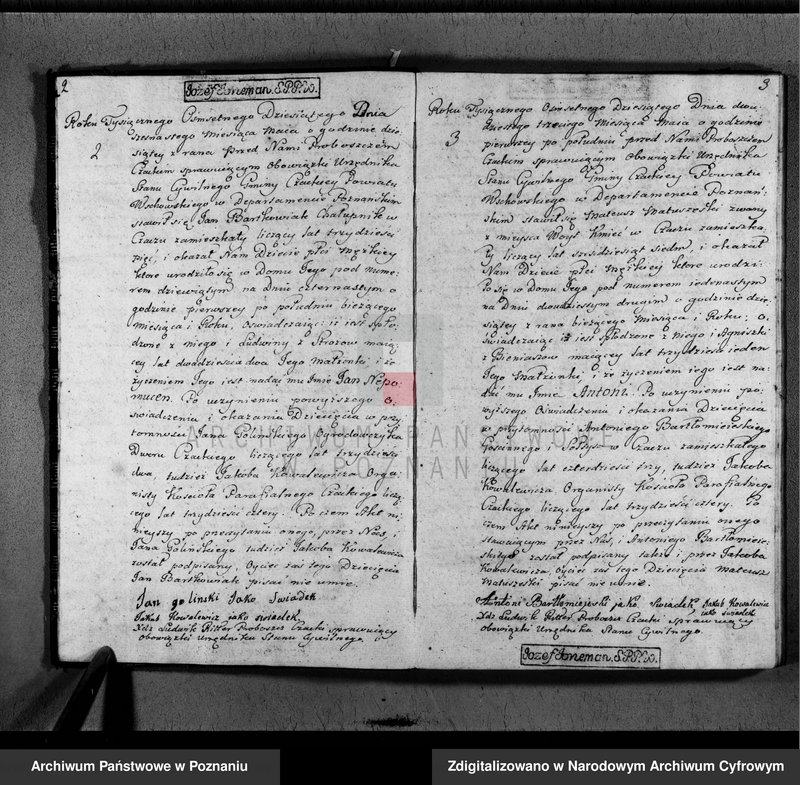 2
Jozef Joneman. S.P.P.W.
Roku Tysiącznego Osmsetnego Dziesiątego Dnia
szesnastego Miesiąca Maia o godzinie dzie-
2
siątey z rana Przed Nami Proboszczem
Czackim sprawuiącym obowiązki Urzędnika
Stanu Cywilnego Gminy Czackiey Powiatu
Wschowskiego w Departamencie Poznańskim
stawił się Jan Bartkowiak Chałupnik w
Czaczu zamieszkały liczący lat trzydzieści
pięć, i okazał Nam Dziecię płci męzkiey
ktore urodziło się w Domu Jego pod nume-
rem dziewiątym na Dniu czternastym o
godzinie pierwszey po południu bieżącego
Miesiąca i Roku, Oswiadczaiąc iż iest spło-
dzone z niego i Ludwiny z Strozow maią-
cey lat dwadzieścia dwa Jego małżonki; i że
życzeniem Jego iest nadać mu Imie Jan Nepo-
mucen. Po uczynieniu powyższego O-
świadczenia i okazania Dziecięcia w przy-
tomności Jana Golińskiego Ogrodowczyka
Dworu Czackiego liczącego lat trzydzieści
dwa tudzież Jakoba Kowalewicza Orga-
nisty Kościoła Parafialnego Czackiego liczą-
cego lat trzydzieści cztery. Po czem Akt ni-
nieyszy po przeczytaniu onego, przez Nas, i
Jana Golińskiego tudzież Jakoba Kowalewicza
został podpisany. Oyciec zaś tego Dziecięcia
Jan Bartkowiak pisać nie umie.
Jan goliński Jako Swiadek
Jakub Kowalewicz jako swiadek
Xdz Ludwik Ritter Proboszcz Czacki sprawuiący
obowiązki Urzędnika Stanu Cywilnego
3
Roku Tysiącznego Osmsetnego Dziesiątego Dnia dwu-
dziestego trzeciego Miesiąca Maia o godzinie
3
pierwszey po południu przed Nami Proboszczem
Czackim sprawuiącym Obowiązki Urzędnika
Stanu Cywilnego Gminy Czackiey Powiatu
Wschowskiego w Departamencie Poznań-
skim stawił się Mateusz Matuszeski zwany
z mieysca Woyt Kmieć w Czaczu zamieszka-
ły liczący lat sześdziesiąt siedm, i okazał
Nam Dziecię płci męzkiey ktore urodzi-
ło się w Domu Jego pod numerem iedenastym
na Dniu dwudziestym drugim o godzinie dzie-
siątey z rana bieżącego Miesiąca i Roku; O-
świadczaiąc iż iest spłodzone z niego i Agnieszki
z Bieniaszow maiącey lat trzydzieści ieden
Jego Małżonki, i że życzeniem iego iest na-
dać mu Imie Antoni. Po uczynieniu po-
wyższego Oświadczenia i okazania Dziecięcia
w przytomności Antoniego Bartłomieieskiego
Gościnnego i Sołtysa w Czaczu zamieszkałego
liczącego lat czterdzieści trzy, tudzież Jakoba
Kowalewicza Organisty Kościoła Parafialnego
Czackiego liczącego lat trzydzieści cztery. Po
czem Akt ninieyszy po przeczytaniu onego
stawaiącym przez Nas, i Antoniego Bartłomieie-
skiego został podpisany także i przez Jakoba
Kowalewicza, Oyciec zaś tego Dziecięcia Mateusz
Matuszeski pisać nie umie.
Antoni Bartłomiejeski jako Swiadek, Jakub Kowalewicz
jako swiadek
Xdz Ludwik Ritter Proboszcz Czacki sprawuiący
obowiązki Urzędnika Stanu Cywilnego.
Jozef Joneman. S.P.P.W.
ARCHIWUM PAŃSTWOWE
W POZNANIU
Archiwum Państwowe w Poznaniu
Zdigitalizowano w Narodowym Archiwum Cyfrowym